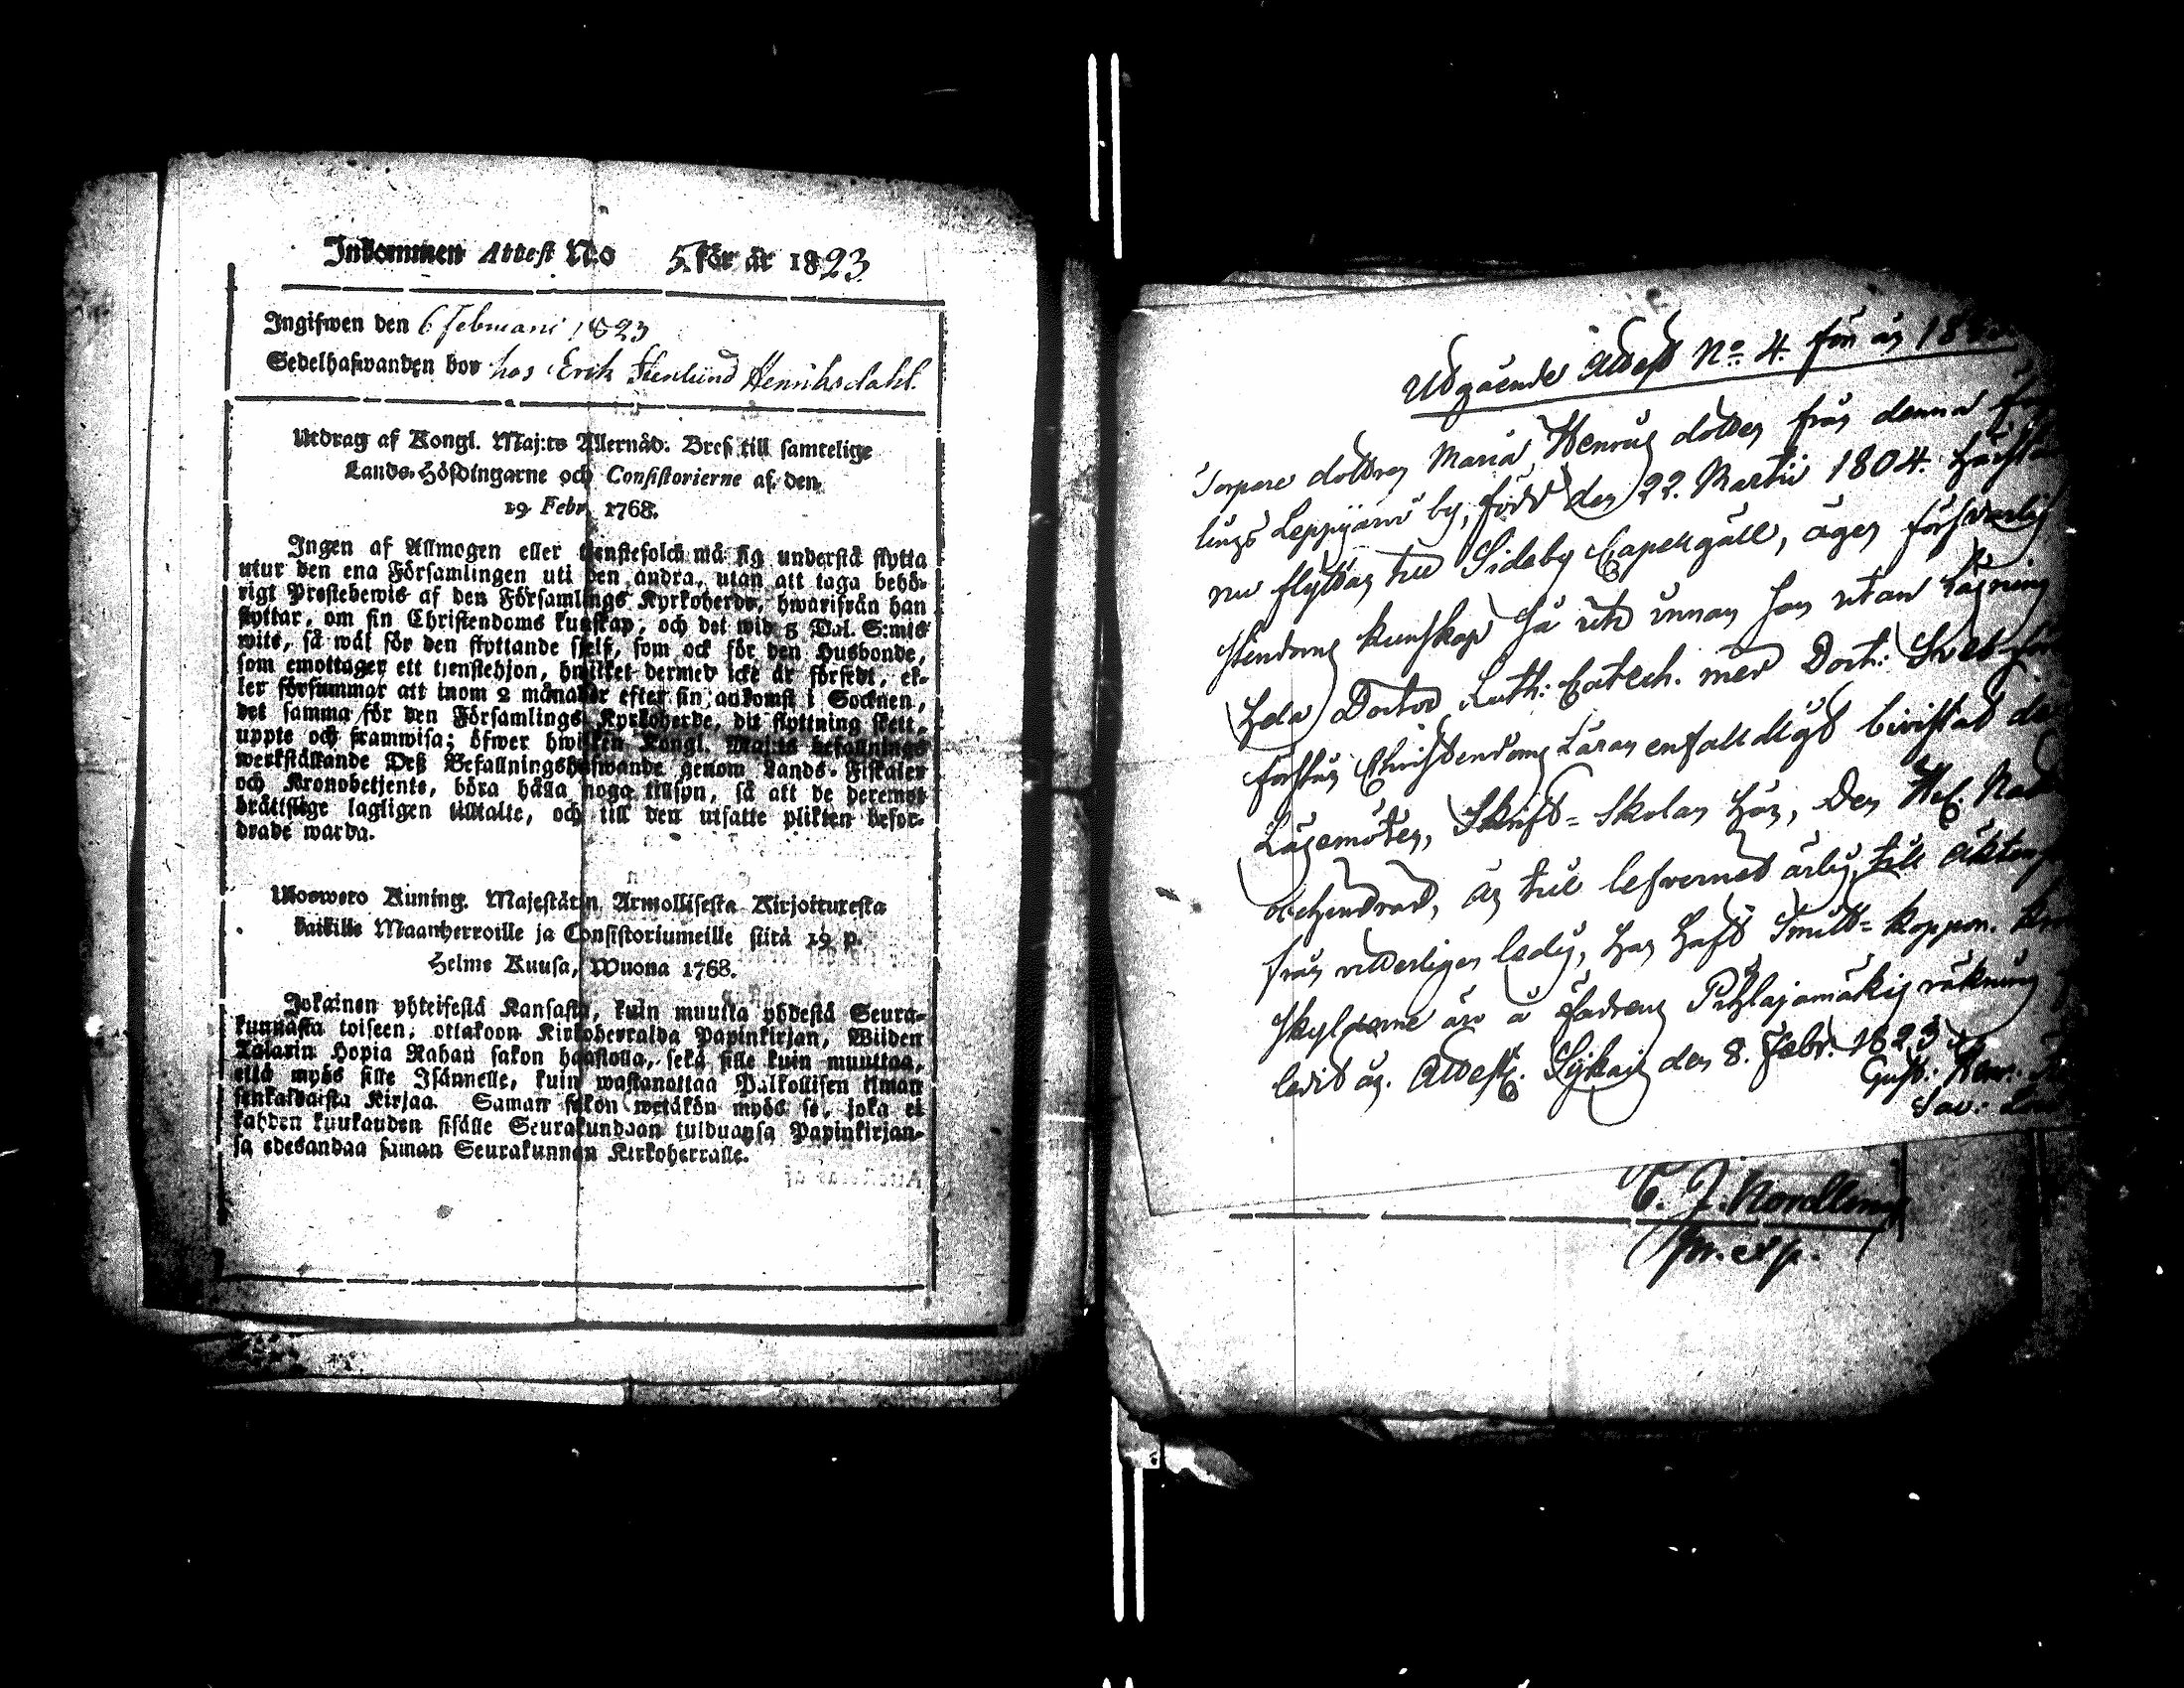 Inkommen Attest N:o 5. för år 1823.
Ingifwen den 6 Februarii 1823
Sedelhafwanden bor hos Erik Stenlund Henriksdahl.
Utdrag af Kongl. Maj:ts Allernåd. Bref till samtelige
Lands-Höfdingarne och Consistorierne af den
19 Febr. 1768.
Ingen af Allmogen eller tjenstefolck må sig understå flytta
utur den ena Församlingen uti den andra, utan att taga behö-
rigt Prestebewis af den Församlings Kyrkoherde, hwarifrån han
flyttar, om sin Christendoms kunskap, och det wid 5 Dal. S:mts
wite, så wäl för den flyttande sjelf, som ock för den Husbonde,
som emottager ett tjenstehjon, hwilket dermed icke är försedt, el-
ler försummar att inom 2 månader efter sin ankomst i Socknen,
det samma för den Församlings Kyrkoherde, dit flyttning skett,
uppte och framwisa; öfwer hwilken Kongl. Maj:ts befallnings
werkställande Deß Befallningshafwande genom Lands-Fiskaler
och Kronobetjente, böra hålla noga tillsyn, så att de deremot
brättslige lagligen tilltalte, och till den utsatte plikten befor-
drade warda.
Ulosweto Kuning. Majestätin Armollisesta Kirjoituresta
kaikille Maanherroille ja Consistoriumeille siitä 19 p.
Helme Kuusa, Wuona 1768.
Jokainen yhteisestä Kansasta, kuin muutta yhdestä Seura-
kunnasta toiseen, ottakoon Kirkoherralda Papinkirjan, Wiiden
Talarin Hopia Rahan sakon haastolla, sekä sille kuin muuttaa,
että myös sille Isännelle, kuin wastanottaa Palkollisen ilman
senkaldaista Kirjaa. Saman sakon wetäkön myös se, joka ei
kahden kuukauden sisälle Seurakundaan tulduansa Papinkirjan-
sa edesandaa saman Seurakunnan Kirkoherralle.
Utgående Attest No. 4. för år 18
Torpare dottren Maria Henrics dotter från denna
lings Leppijärvi by, född den 22. Martii 1804.
nu flyttar till Sideby Capellgäll, äger försvarlig
stendoms kunskap så uti innan som utan läsning
hela Doctor Luth: Catech. med Doct: Sveb
Christendoms Läran enfaldligt bevistat
Läsemöten, Skrift-Skolan hör, Den Hel.
obehindrad, är till lefvernet ärlig, till äkten
från vitterligen ledig, har haft Smitt-koppor.
skylderne äro å Fadrens Pihlajamäkis räkning
ledit år. Attest. Sijkais den 8. Febr. 1823
Gust: Henr:
Sav:
C. J. Nordling
m. e. p.